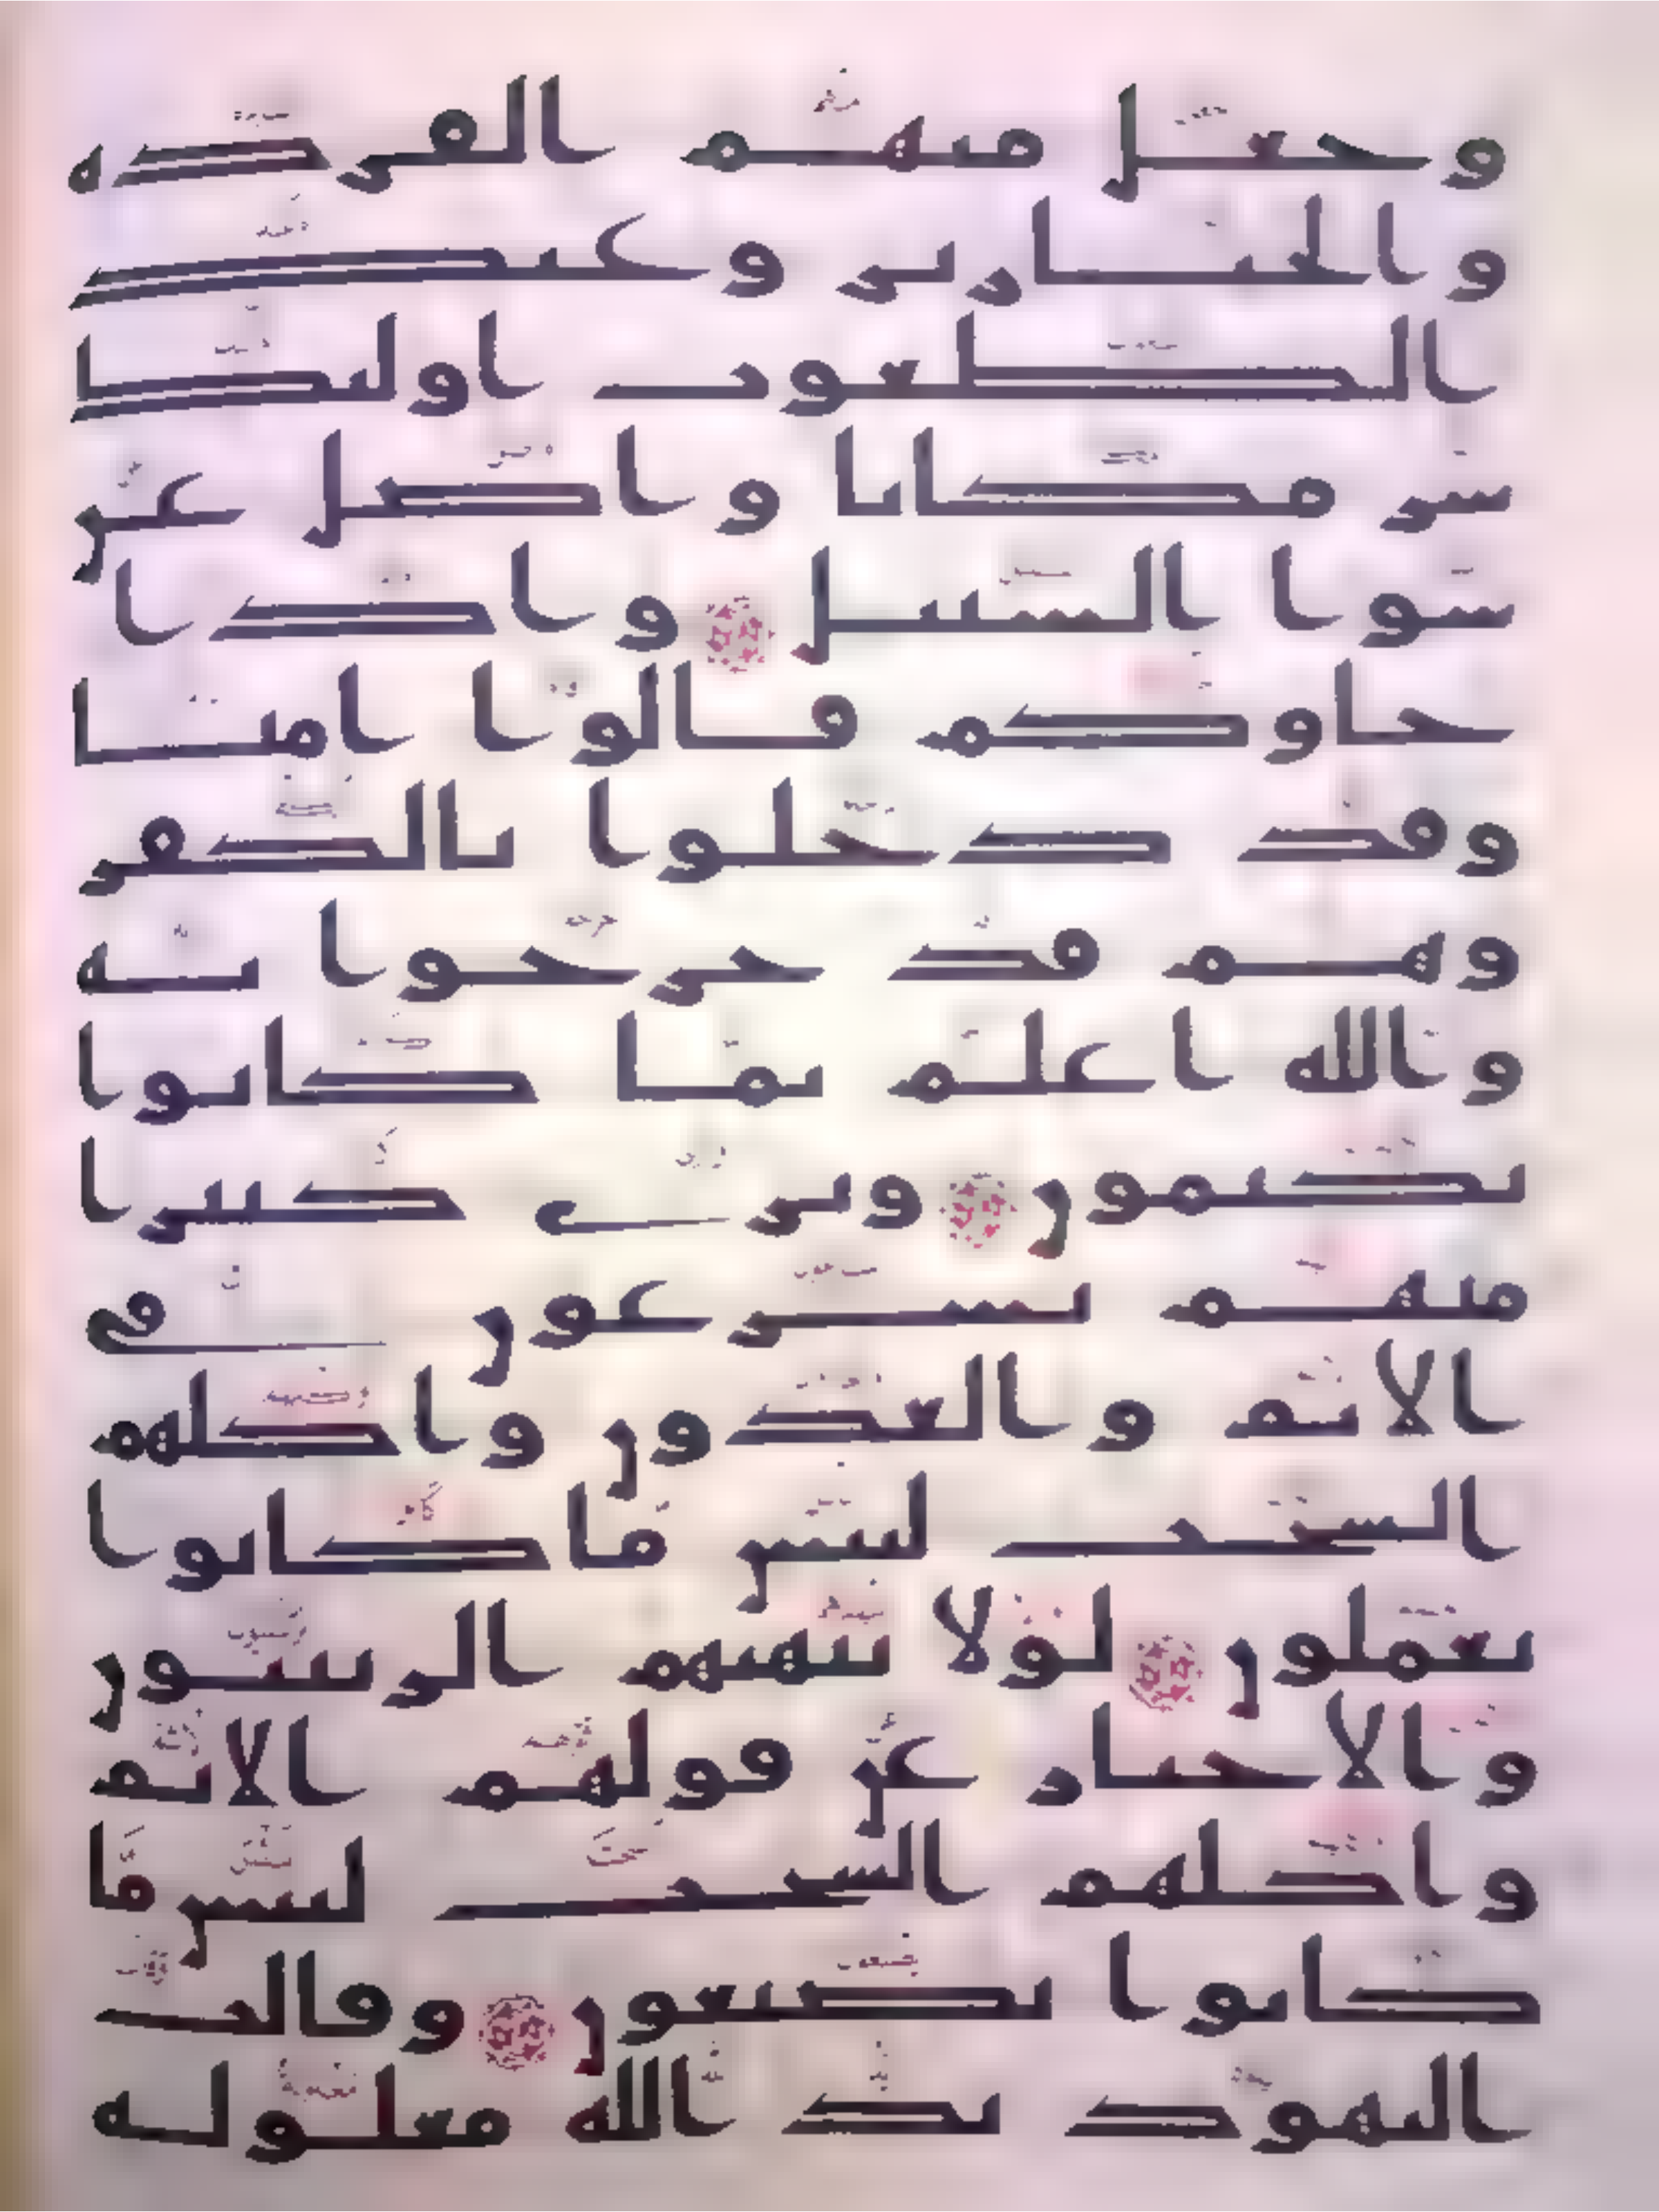 وجعل منهم القردة
والخنازير وعبد
الطغوت اوليك
شر مكانا واضل عن
سوا السبيل واذا
جاوكم قالوا امنا
وقد دخلوا بالكفر
وهم قد خرجوا به
والله اعلم بما كانوا
يكتمون وترى كثيرا
منهم يسرعون في
الاثم والعدون واكلهم
السحت لبيس ما كانوا
يعملون لولا ينهيهم الربنيون
والاحبار عن قولهم الاثم
واكلهم السحت لبيس ما
كانوا يصنعون وقالت
اليهود يد الله مغلولة